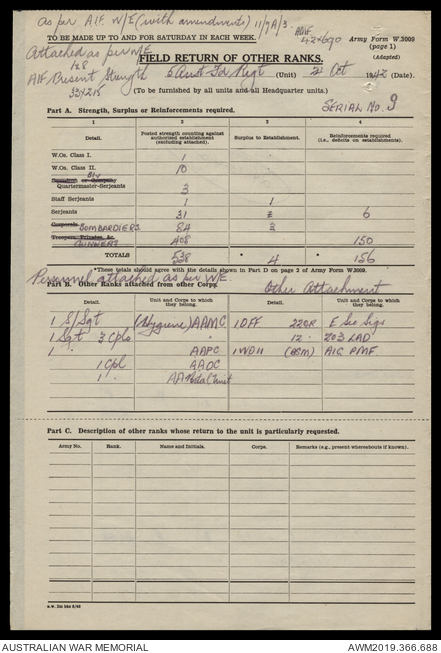 as per A.I.F. W/E (with amendments) 11/9A/3.
TO BE MADE UP TO AND FOR SATURDAY IN EACH WEEK.
Army Form W.3009
(page 1)
(Adapted)
Attached as per W/E
128
A.I.F. Present Strength
FIELD RETURN OF OTHER RANKS.
5 Aust Fd Regt (Unit) 2 Oct 1942 (Date).
(To be furnished by all units and all Headquarter units.)
SERIAL No. 9
Part A. Strength, Surplus or Reinforcements required.
1 2 3 4
Detail. Posted strength counting against authorised establishment (excluding attached). Surplus to Establishment. Reinforcements required (i.e., deficits on establishment).
W.Os. Class I. 1
W.Os. Class II. 10
Bty
Squadron or Company
Quartermaster-Serjeants 3
Staff Serjeants 1 1
Serjeants 31 6
Corporals BOMBARDIERS 84
Troopers, Privates, &c. GUNNERS 408 150
TOTALS 538 * 4 * 156
*These totals should agree with the details shown in Part D on page 2 of Army Form W.3009.
Personnel attached as per W/E. Other Attachment
Part B. Other Ranks attached from other Corps.
Detail. Unit and Corps to which they belong. Detail. Unit and Corps to which they belong.
1 S/Sgt (Hygiene) AAMC 1 OFF 22OR E Sec Sigs
1 Sgt 3 Cpls " 12 " 203 LAD
1 " AAPC 1 WO11 (BSM) AIG PMF
1 Cpl AAOC
1 " AA Postal Unit
Part C. Description of other ranks whose return to the unit is particularly requested.
Army No. Rank. Name and Initials. Corps. Remarks (e.g., present whereabouts if known).
AUSTRALIAN WAR MEMORIAL
AWM2019.366.688